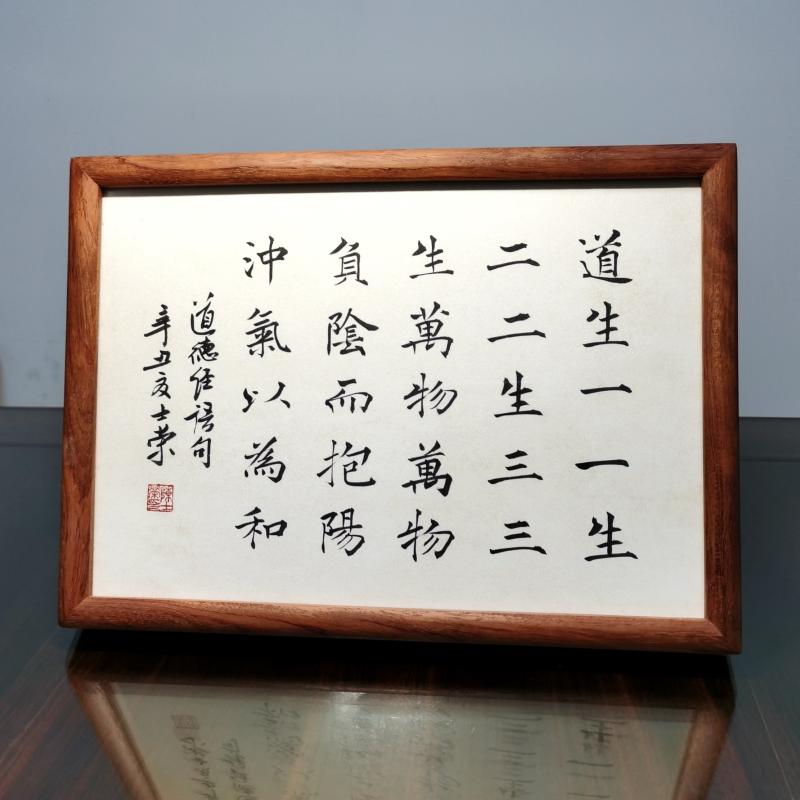 道生一一生
二二生三三
生萬物萬物
負陰而抱陽
沖氣以為和
道德經語句
辛丑夏士榮